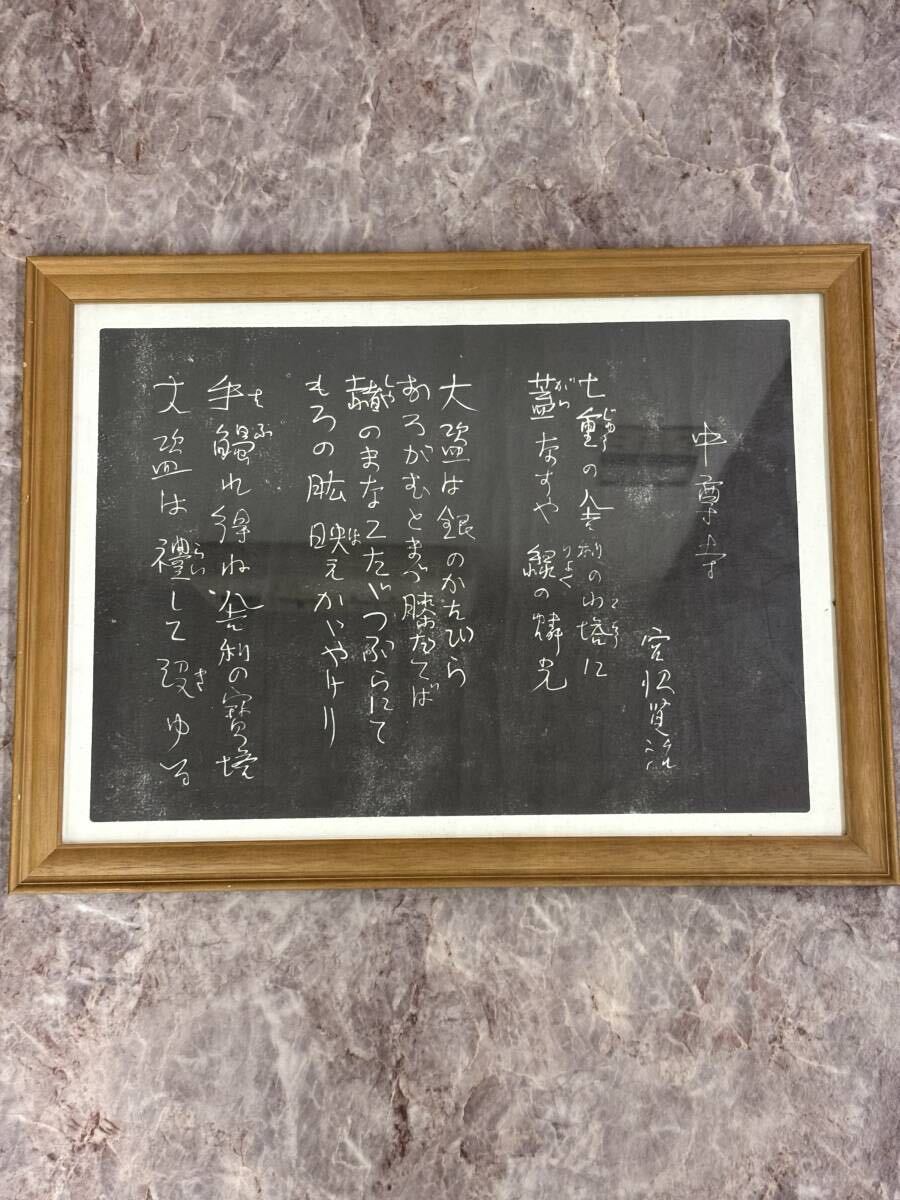 中尊寺
宮沢賢治
七重の舎利の小塔に
蓋なすや緑の燐光
大盗は銀のかたびら
おろがむとまづ膝だてば
赭のまなこたゞつぶらにて
もろの肱映えかゞやけり
手觸れ得ね舎利の寶塔
大盗は禮して没ゆる